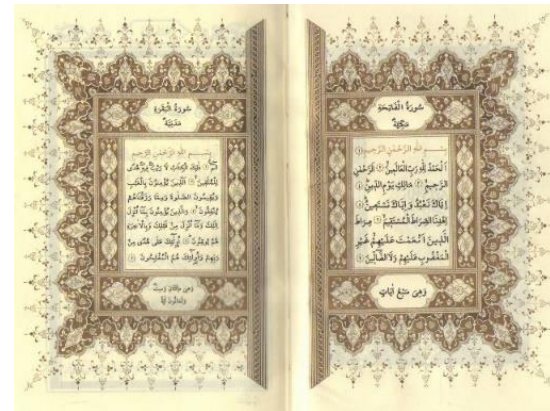 سُورَةُ الْفَاتِحَةِ
مَكِّيَّةٌ
بِسْمِ اللّٰهِ الرَّحْمٰنِ الرَّحِيمِ ﴿١﴾
اَلْحَمْدُ لِلّٰهِ رَبِّ الْعَالَمِينَ ﴿٢﴾ اَلرَّحْمٰنِ
الرَّحِيمِ ﴿٣﴾ مَالِكِ يَوْمِ الدِّينِ ﴿٤﴾
اِيَّاكَ نَعْبُدُ وَاِيَّاكَ نَسْتَعِينُ ﴿٥﴾
اِهْدِنَا الصِّرَاطَ الْمُسْتَقِيمَ ﴿٦﴾ صِرَاطَ
الَّذِينَ اَنْعَمْتَ عَلَيْهِمْ غَيْرِ
الْمَغْضُوبِ عَلَيْهِمْ وَلَا الضَّالِّينَ ﴿٧﴾
وَهِيَ سَبْعُ اٰيَاتٍ
سُورَةُ الْبَقَرَةِ
مَدَنِيَّةٌ
بِسْمِ اللّٰهِ الرَّحْمٰنِ الرَّحِيمِ
الٓمٓ ﴿١﴾ ذٰلِكَ الْكِتَابُ لَا رَيْبَ فِيهِ هُدًى
لِلْمُتَّقِينَ ﴿٢﴾ اَلَّذِينَ يُؤْمِنُونَ بِالْغَيْبِ
وَيُقِيمُونَ الصَّلٰوةَ وَمِمَّا رَزَقْنَاهُمْ
يُنْفِقُونَ ﴿٣﴾ وَالَّذِينَ يُؤْمِنُونَ بِمَا اُنْزِلَ
اِلَيْكَ وَمَا اُنْزِلَ مِنْ قَبْلِكَ وَبِالْاٰخِرَةِ
هُمْ يُوقِنُونَ ﴿٤﴾ اُولٰئِكَ عَلٰى هُدًى مِنْ
رَبِّهِمْ وَاُولٰئِكَ هُمُ الْمُفْلِحُونَ ﴿٥﴾
وَهِيَ مِائَتَانِ وَسِتٌّ
وَثَمَانُونَ اٰيَةً